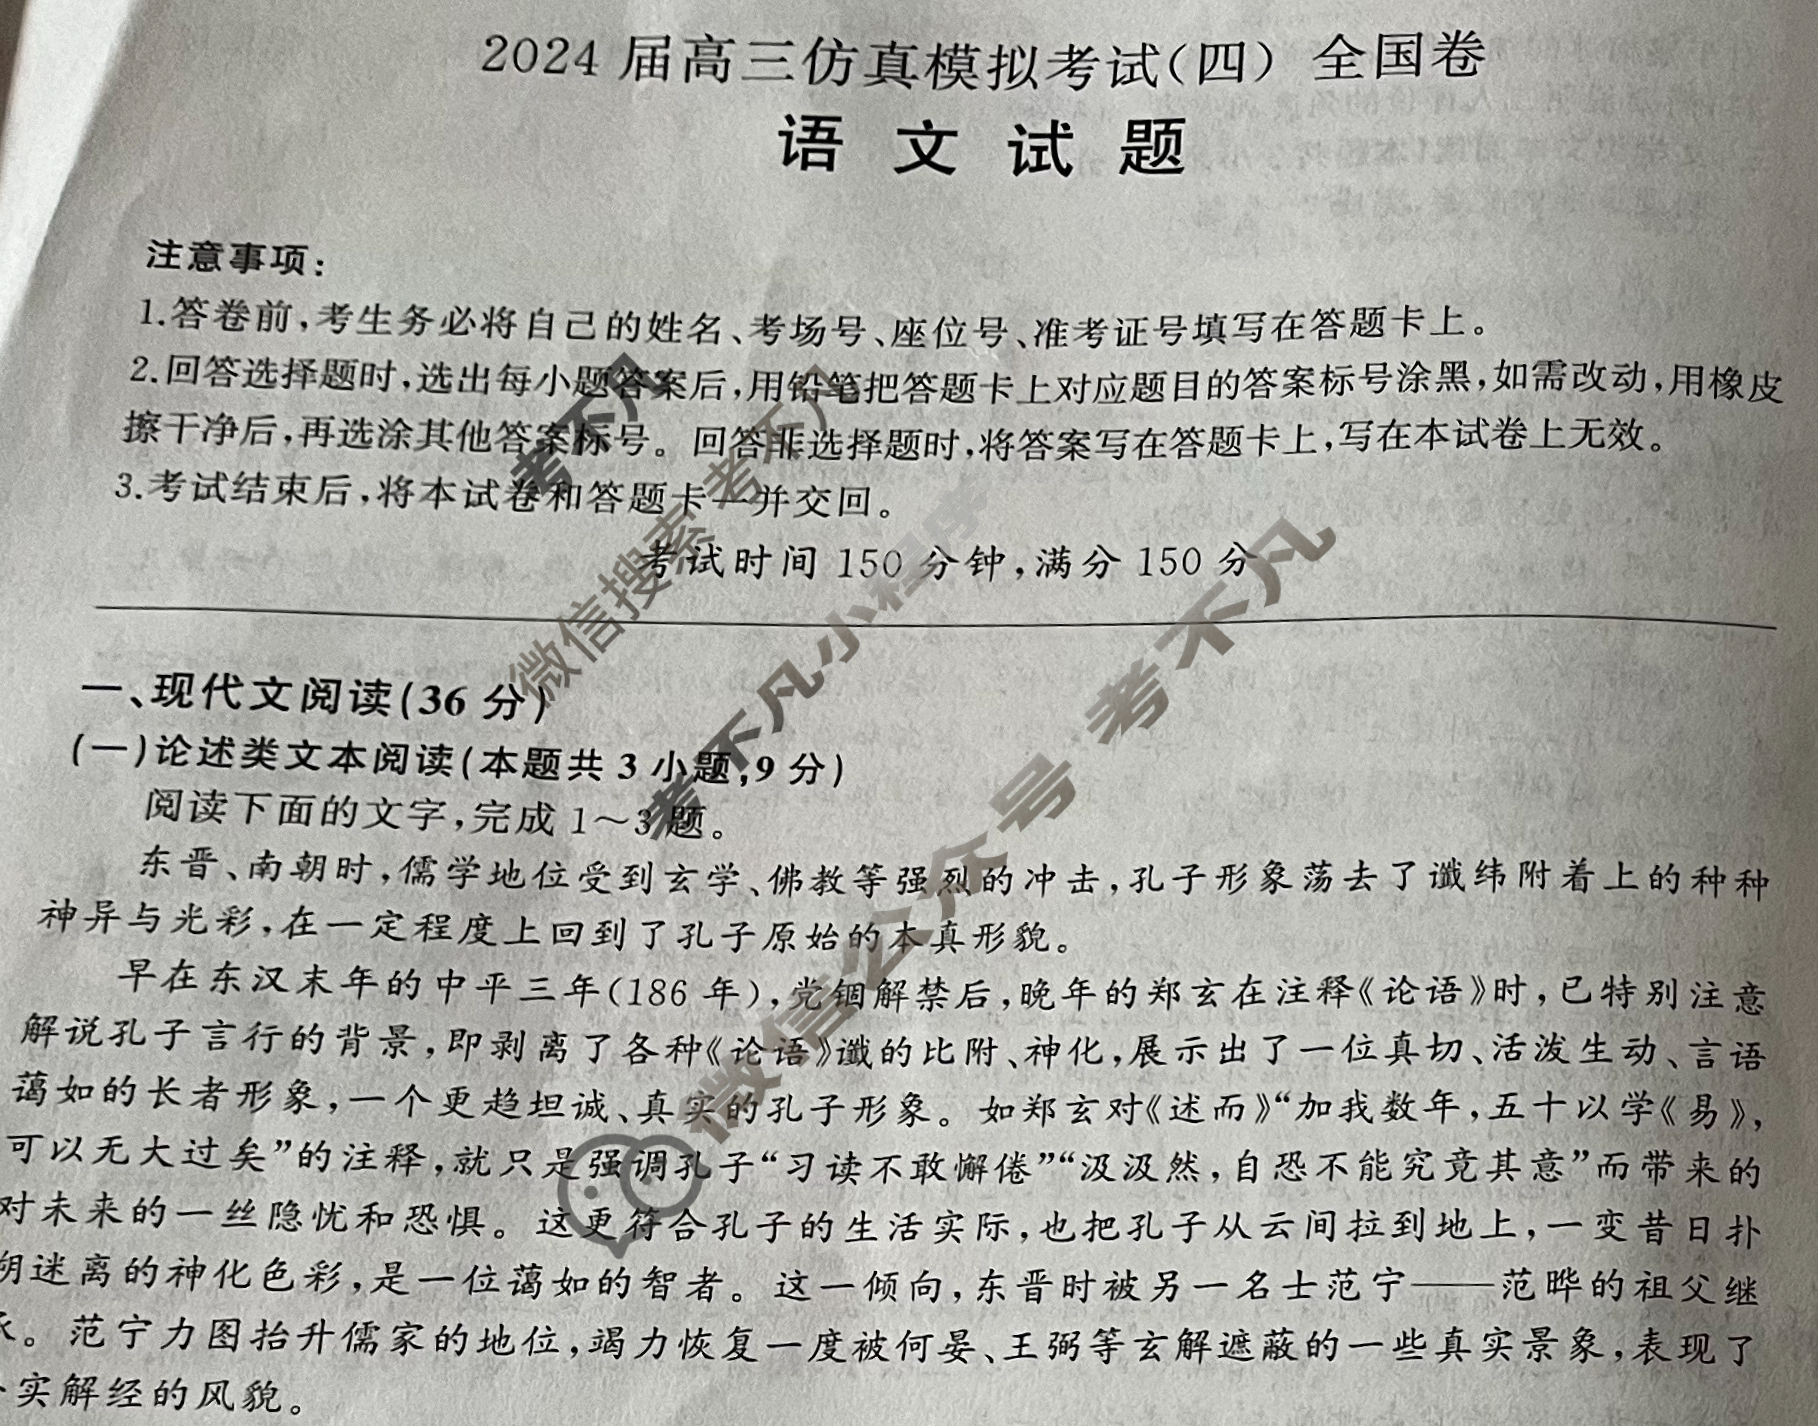 2024 届高三仿真模拟考试(四) 全国卷
语文试题
注意事项:
1.答卷前,考生务必将自己的姓名、考场号、座位号、准考证号填写在答题卡上。
2.回答选择题时,选出每小题答案后,用铅笔把答题卡上对应题目的答案标号涂黑,如需改动,用橡皮
擦干净后,再选涂其他答案标号。回答非选择题时,将答案写在答题卡上,写在本试卷上无效。
3.考试结束后,将本试卷和答题卡一并交回。
考试时间 150 分钟,满分 150 分
一、现代文阅读(36 分)
(一)论述类文本阅读(本题共 3 小题,9 分)
阅读下面的文字,完成 1～3 题。
东晋、南朝时,儒学地位受到玄学、佛教等强烈的冲击,孔子形象荡去了谶纬附着上的种种
神异与光彩,在一定程度上回到了孔子原始的本真形貌。
早在东汉末年的中平三年(186 年),党锢解禁后,晚年的郑玄在注释《论语》时,已特别注意
解说孔子言行的背景,即剥离了各种《论语》谶的比附、神化,展示出了一位真切、活泼生动、言语
蔼如的长者形象,一个更趋坦诚、真实的孔子形象。如郑玄对《述而》“加我数年,五十以学《易》,
可以无大过矣”的注释,就只是强调孔子“习读不敢懈倦”“汲汲然,自恐不能究竟其意”而带来的
对未来的一丝隐忧和恐惧。这更符合孔子的生活实际,也把孔子从云间拉到地上,一变昔日扑
朔迷离的神化色彩,是一位蔼如的智者。这一倾向,东晋时被另一名士范宁——范晔的祖父继
。范宁力图抬升儒家的地位,竭力恢复一度被何晏、王弼等玄解遮蔽的一些真实景象,表现了
实解经的风貌。
考不凡
微信搜索 考不凡
考不凡小程序
微信公众号 考不凡